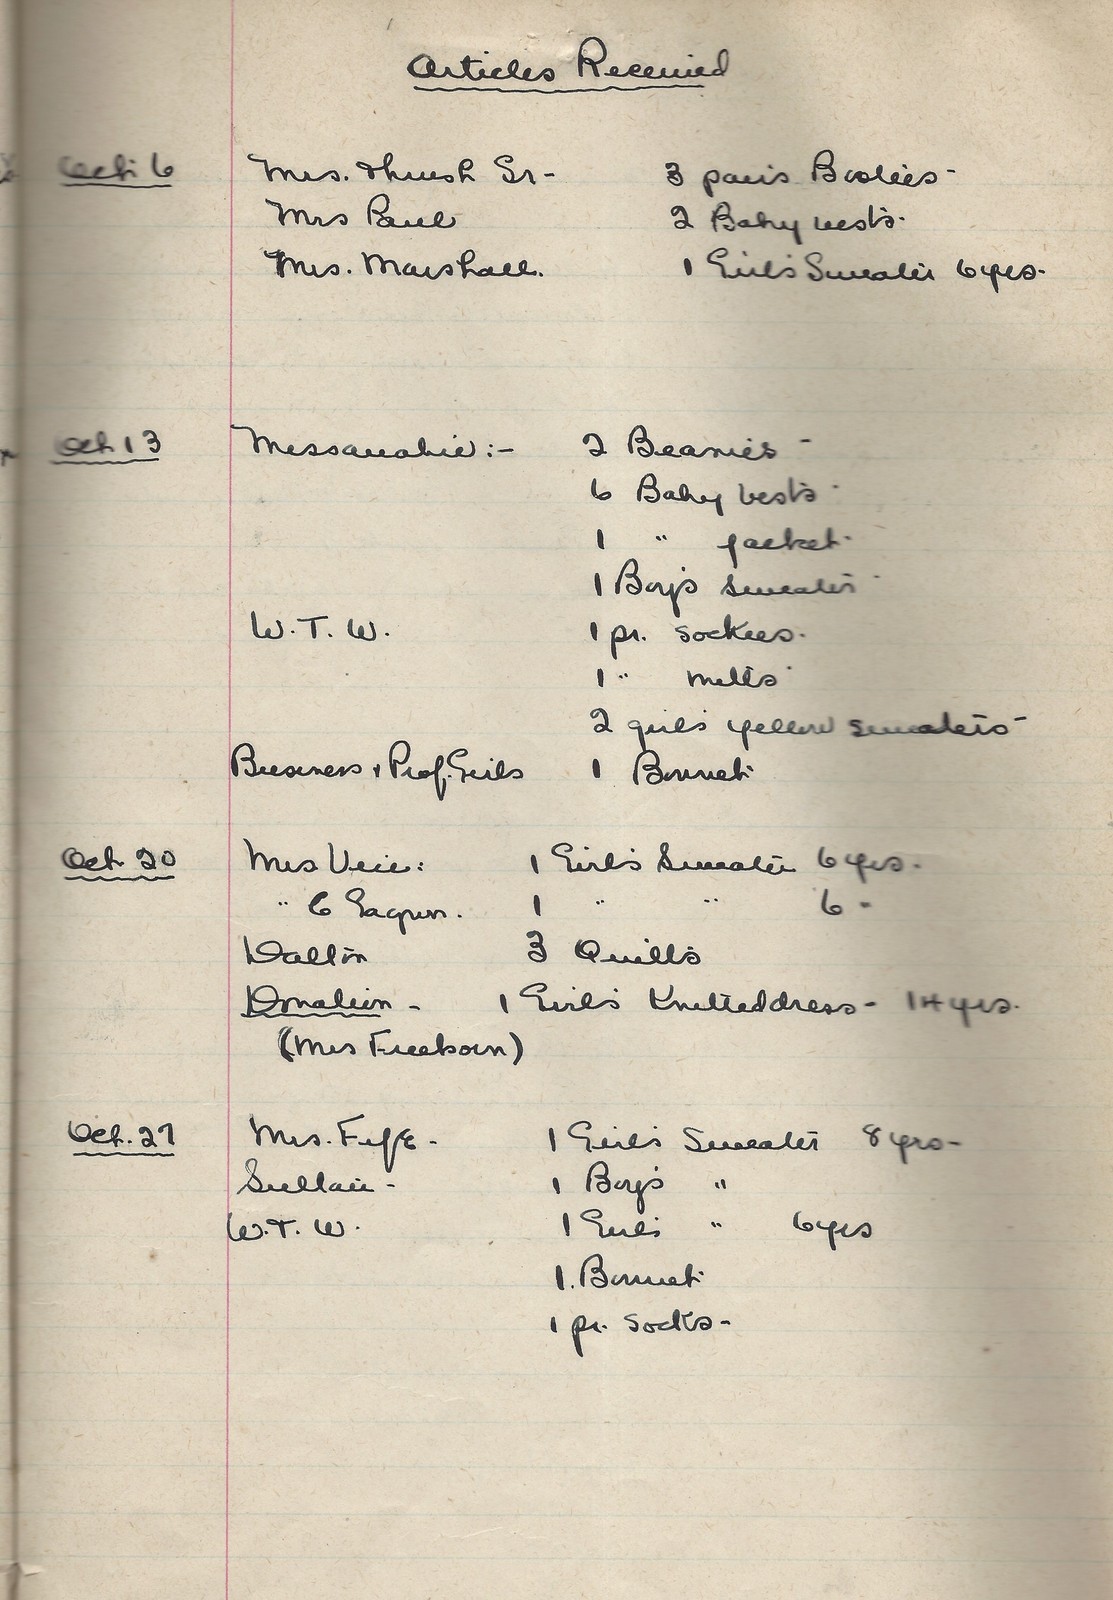 Articles Received
Oct. 6 Mrs. Thrush Sr- 3 pairs Booties-
Mrs Paul 2 Baby vests.
Mrs. Marshall. 1 Girl's Sweater 6 yrs.
Oct 13 Missanabie:- 2 Beanies -
6 Baby vests
1 " jacket.
1 Boy's Sweater
W. T. W. 1 pr. sockees.
1 " mitts
2 girl's yellow sweaters-
Business & Prof. Girls 1 Bonnet
Oct. 20 Mrs Veie: 1 Girl's Sweater 6 yrs.
" 1 " " 6 "
Dalton 3 Quilts
Donation - 1 Girl's Knitted dress - 14 yrs.
(Mrs Freeborn)
Oct. 27 Mrs. Fyfe - 1 Girl's Sweater 8 yrs-
Sultan - 1 Boy's "
W. T. W. 1 Girl's " 6 yrs
1. Bonnet
1 pr. socks-